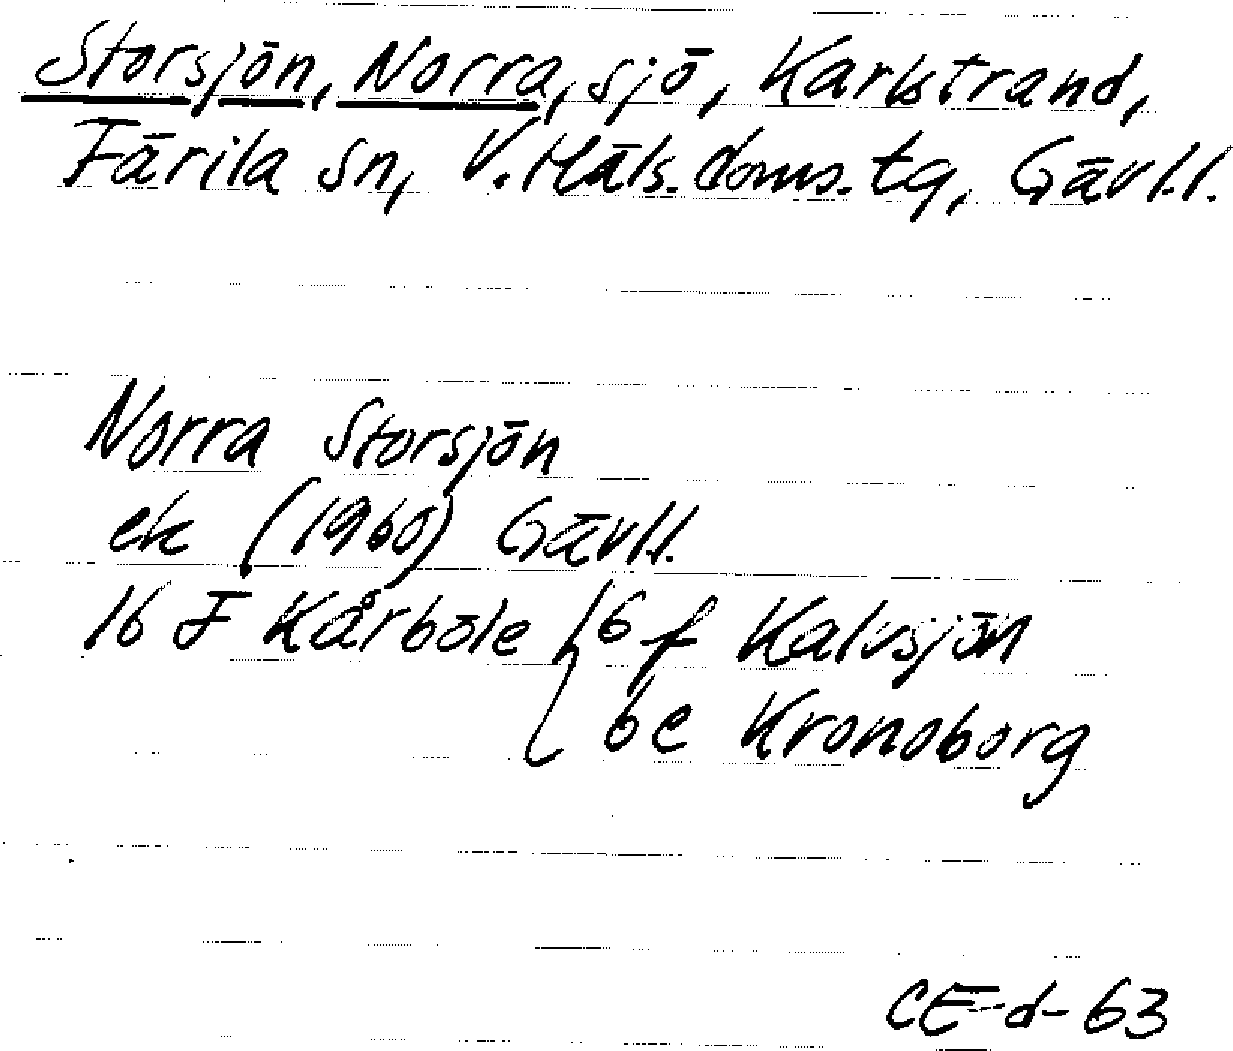 Storsjön, Norra, sjö, Karlstrand,
Färila sn, V. Häls. doms. tg, Gävl.l.
Norra Storsjön
ek (1960) Gävl.l.
16 F Kårböle { 6 f Kalvsjön
6e Kronoborg
CE-d-63